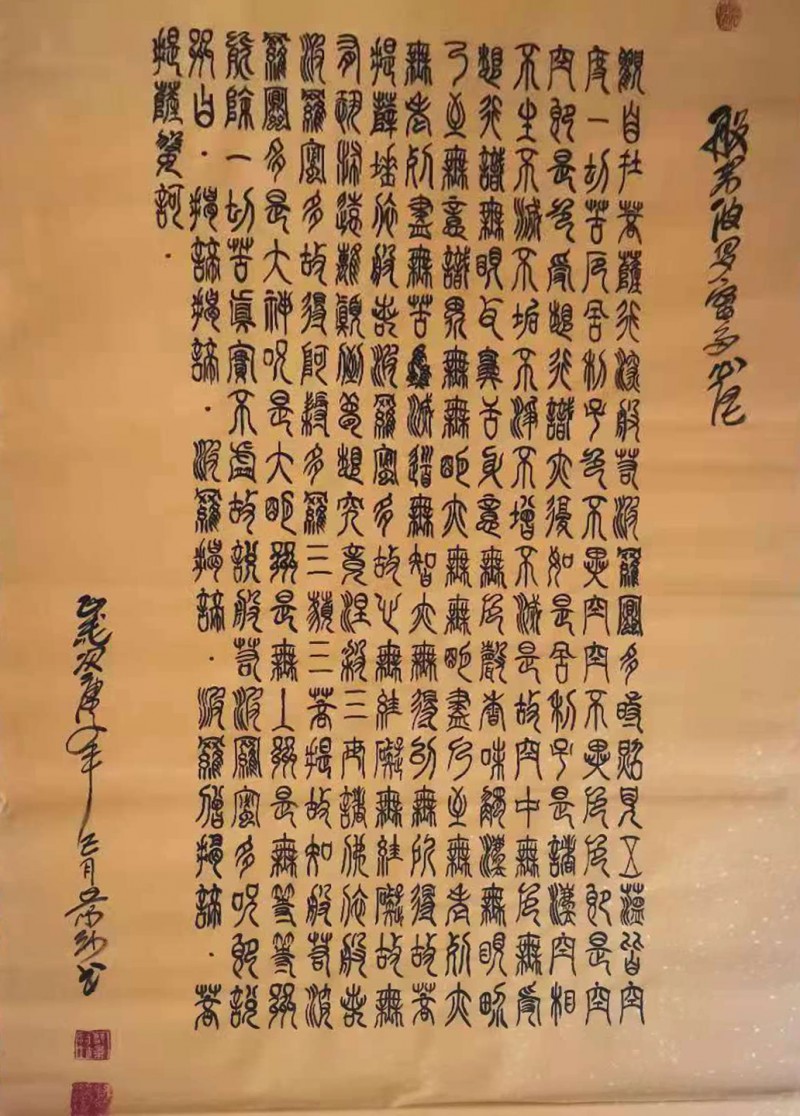 般若波罗蜜多心经
觀自在菩薩行深般若波羅蜜多時照見五蘊皆空
度一切苦厄舍利子色不異空空不異色色即是空
空即是色受想行識亦復如是舍利子是諸法空相
不生不滅不垢不淨不增不減是故空中無色無受
想行識無眼耳鼻舌身意無色聲香味觸法無眼界
乃至無意識界無無明亦無無明盡乃至無老死亦
無老死盡無苦集滅道無智亦無得以無所得故菩
提薩埵依般若波羅蜜多故心無罣礙無罣礙故無
有恐怖遠離顛倒夢想究竟涅槃三世諸佛依般若
波羅蜜多故得阿耨多羅三藐三菩提故知般若波
羅蜜多是大神咒是大明咒是無上咒是無等等咒
能除一切苦真實不虛故說般若波羅蜜多咒即說
咒曰·揭諦揭諦·波羅揭諦·波羅僧揭諦·菩
提薩婆訶·
歲次庚年月书